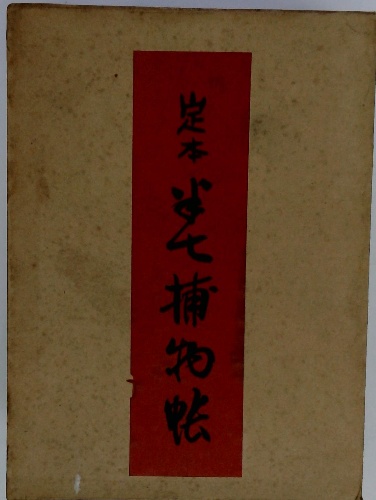 定本 半七捕物帳